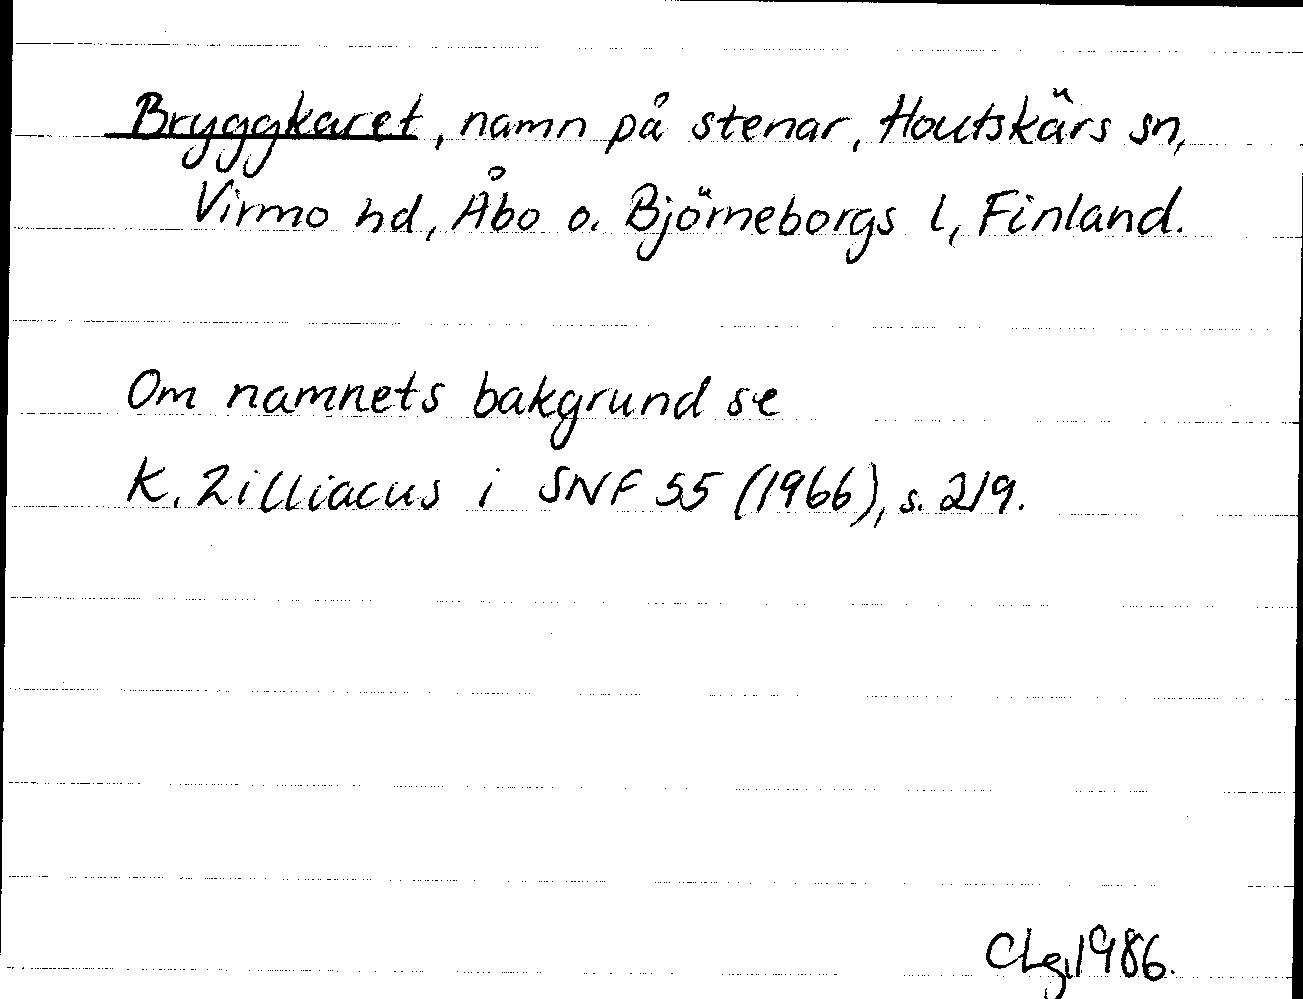 Bryggkaret, namn på stenar, Houtskärs sn,
Virmo hd, Åbo o. Björneborgs l, Finland.
Om namnets bakgrund se
K. Zilliacus i SNF 55 (1966), s. 219.
CLg 1986.